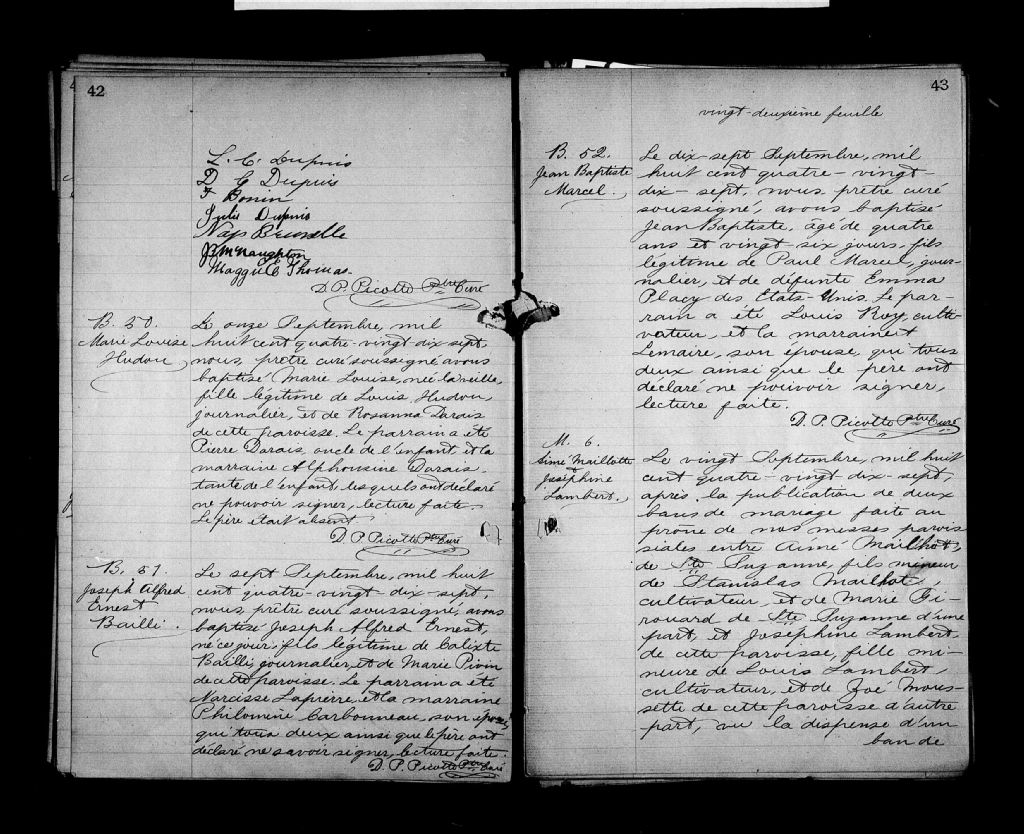 42
L. C. Dupuis
D C Dupuis
F Bonin
Julie Dupuis
Nap Brunelle
J B McNaughton
Maggie C Thomas
D. P. Picotte Ptre Curé
B. 50.
Marie Louise
Hudon
Le onze Septembre, mil
huit cent quatre-vingt-dix-sept,
nous, prêtre curé soussigné avons
baptisé Marie Louise, née la veille,
fille légitime de Louis Hudon,
journalier, et de Rosanna Darais
de cette paroisse. Le parrain a été
Pierre Darais, oncle de l'enfant et la
marraine Alphonsine Darais
tante de l'enfant, lesquels ont déclaré
ne pouvoir signer, lecture faite.
Le père etait absent
D. P. Picotte Ptre Curé
B. 51.
Joseph Alfred
Ernest
Bailli.
Le sept Septembre, mil huit
cent quatre-vingt-dix-sept,
nous, prêtre curé soussigné, avons
baptisé Joseph Alfred Ernest,
né ce jour, fils légitime de Calixte
Bailli, journalier, et de Marie Pivin
de cette paroisse. Le parrain a été
Narcisse Lapierre, et la marraine
Philomène Carbonneau, son épouse,
qui tous deux ainsi que le père ont
déclaré ne savoir signer, lecture faite.
D. P. Picotte Ptre Curé
43
vingt-deuxième feuille
B. 52.
Jean Baptiste
Marcel.
Le dix-sept Septembre, mil
huit cent quatre-vingt-
dix-sept, nous, prêtre curé
soussigné, avons baptisé
Jean Baptiste, âgé de quatre
ans et vingt-six jours, fils
légitime de Paul Marcel, jour-
nalier, et de défunte Emma
Placy des Etats-Unis. Le par-
rain a été Louis Roy, culti-
vateur, et la marraine
Lemaire, son épouse, qui tous
deux ainsi que le père ont
déclaré ne pouvoir signer,
lecture faite.
D. P. Picotte Ptre Curé
M. 6.
Aimé Maillotte
et
Joséphine
Lambert.
Le vingt Septembre, mil huit
cent quatre-vingt-dix-sept,
après la publication de deux
bans de mariage faite au
prône de nos messes parois
siales entre Aimé Mailhot,
de Ste Suzanne, fils mineur
de Stanislas Mailhot,
cultivateur, et de Marie Gi-
rouard de Ste Suzanne d'une
part, et Joséphine Lambert,
de cette paroisse, fille mi-
neure de Louis Lambert,
cultivateur, et de Zoé Mous-
sette de cette paroisse d'autre
part, vu la dispense d'un
ban de